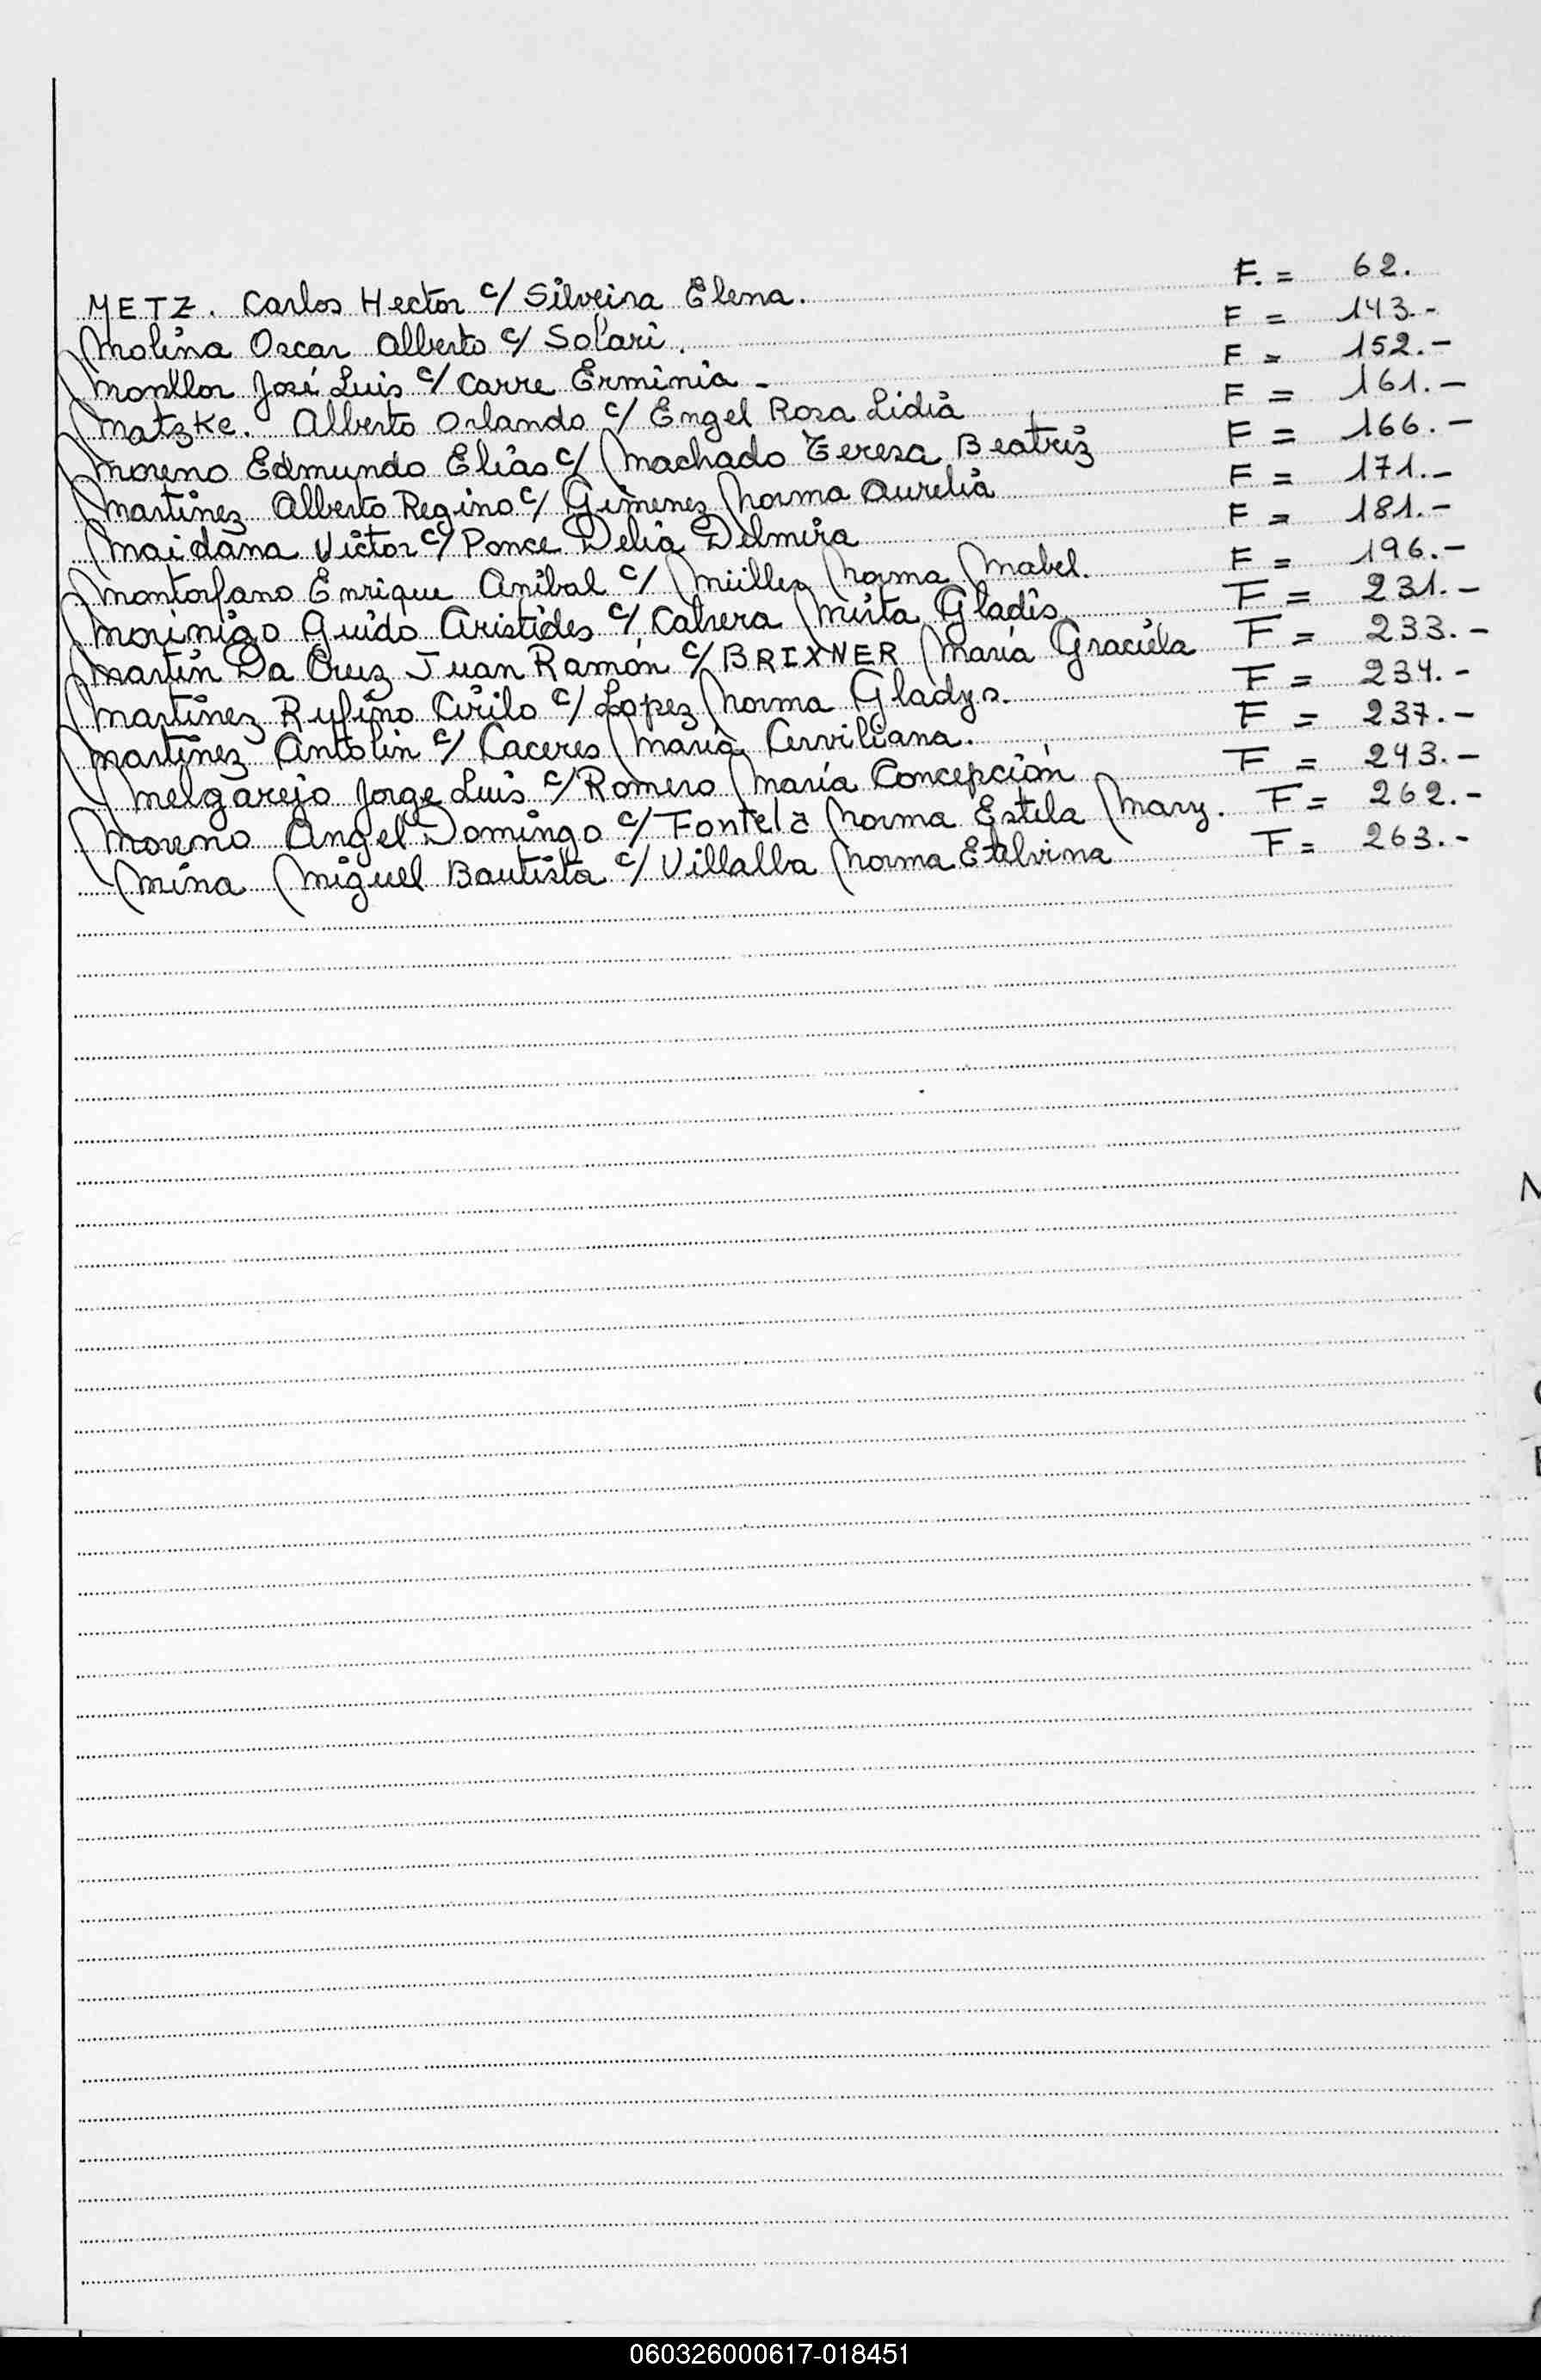 METZ. Carlos Hector c/ Silveira Elena. F. = 62.
Molina Oscar Alberto c/ Solari. F = 143.-
Monllor José Luis c/ Carre Erminia - F = 152.-
Matzke. Alberto Orlando c/ Engel Rosa Lidia F = 161.-
Moreno Edmundo Elias c/ Machado Teresa Beatriz F = 166.-
Martinez Alberto Regino c/ Gimenez Norma Aurelia F = 171.-
Maidana Victor c/ Ponce Delia Delmira F = 181.-
Montorfano Enrique Anibal c/ Müller Norma Mabel. F = 196.-
Morinigo Guido Aristides c/ Cabrera Mirta Gladis F = 231.-
Martin Da Cruz Juan Ramón c/ BRIXNER Maria Graciela F = 233.-
Martinez Rufino Cirilo c/ Lopez Norma Gladys. F = 234.-
Martinez Antolin c/ Caceres Maria Cerviliana. F = 237.-
Melgarejo Jorge Luis c/ Romero María Concepción F = 243.-
Moreno Angel Domingo c/ Fontela Norma Estela Mary. F = 262.-
Mina Miguel Bautista c/ Villalba Norma Etelvina F = 263.-
060326000617-018451